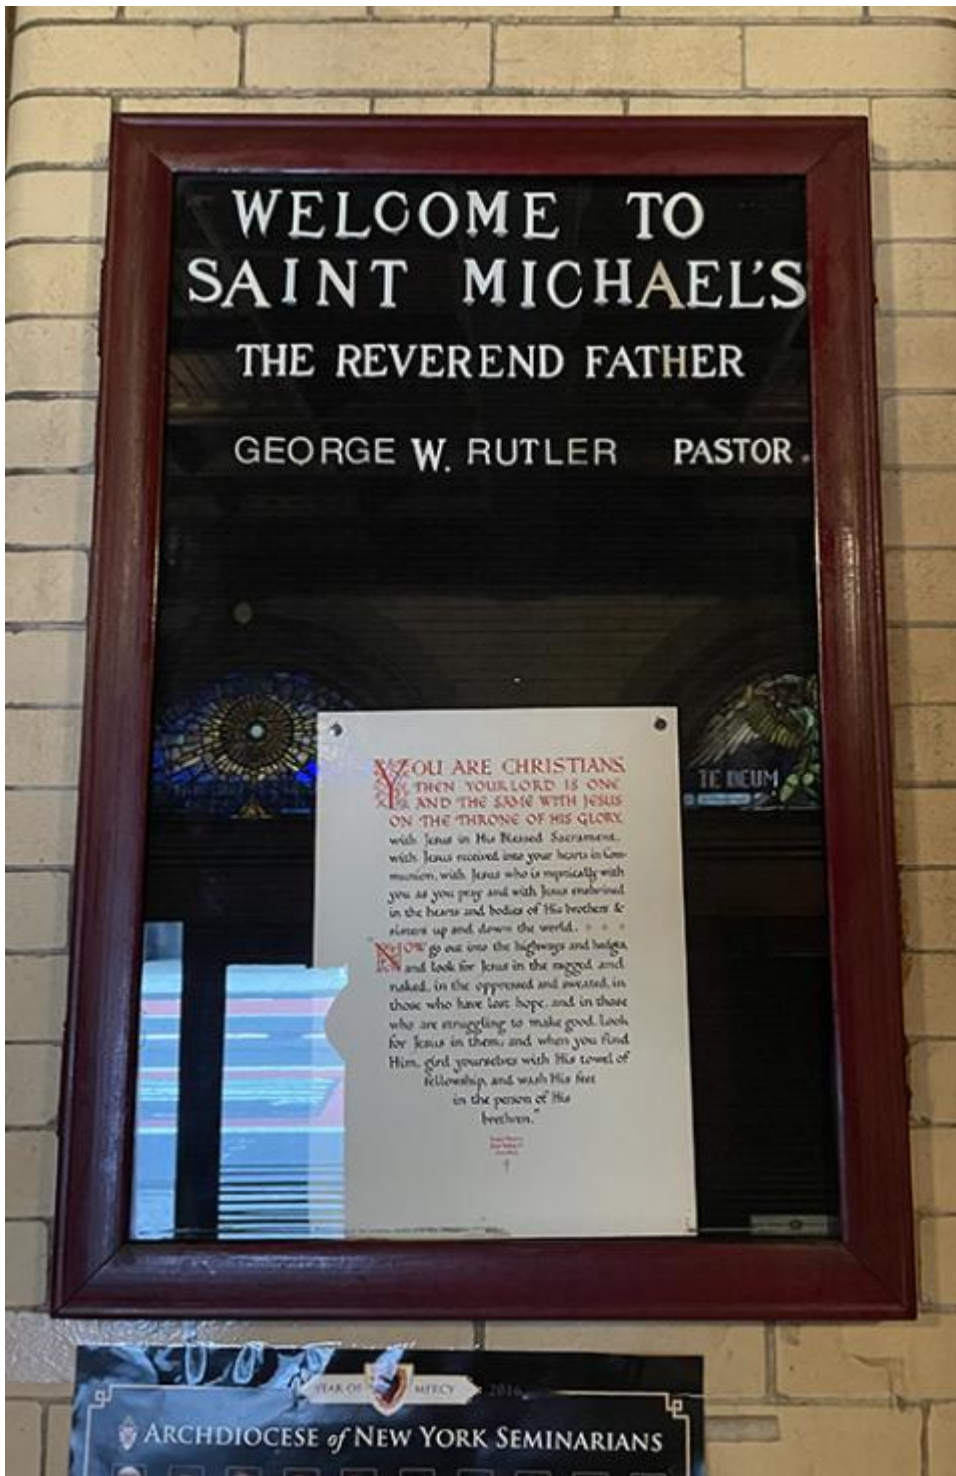 WELCOME TO
SAINT MICHAEL'S
THE REVEREND FATHER
GEORGE W. RUTLER PASTOR.
TE DEUM
YOU ARE CHRISTIANS,
THEN YOUR LORD IS ONE
AND THE SAME WITH JESUS
ON THE THRONE OF HIS GLORY,
with Jesus in His Blessed Sacrament,
with Jesus received into your hearts in Com-
munion, with Jesus who is mystically with
you as you pray and with Jesus enshrined
in the hearts and bodies of His brothers &
sisters up and down the world. . . .
"Now go out into the highways and hedges,
and look for Jesus in the ragged and
naked, in the oppressed and sweated, in
those who have lost hope, and in those
who are struggling to make good. Look
for Jesus in them, and when you find
Him, gird yourselves with His towel of
fellowship, and wash His feet
in the person of His
brethren."
YEAR OF MERCY 2016
ARCHDIOCESE of NEW YORK SEMINARIANS